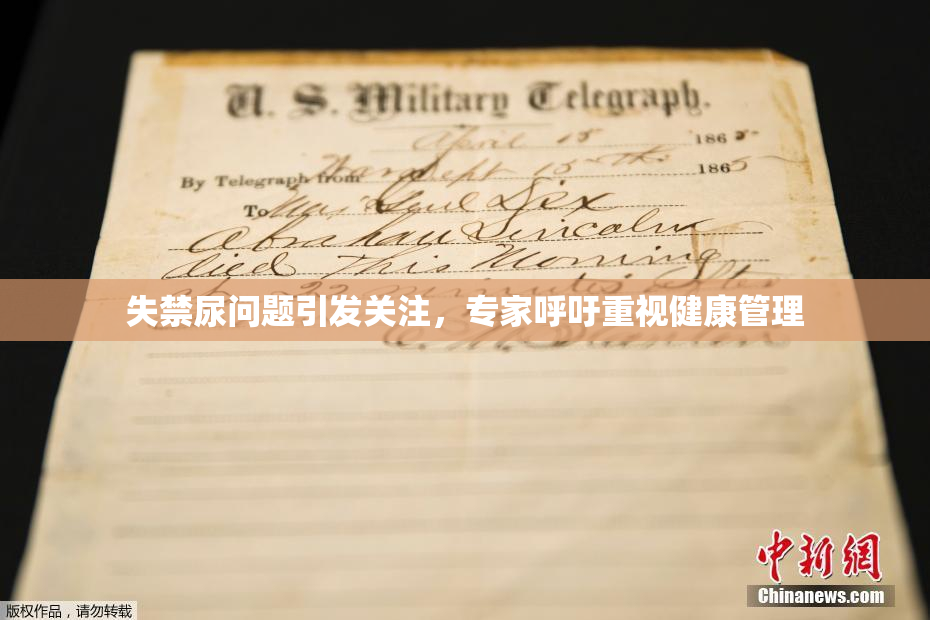 U. S. Military Telegraph.
April 15 1865
By Telegraph from War Dept 15th 1865
To Maj Genl Dix
Abraham Lincoln
died This Morning
at 22 minutes after
失禁尿问题引发关注，专家呼吁重视健康管理
E. M. Stanton
中新网
Chinanews.com
版权作品，请勿转载